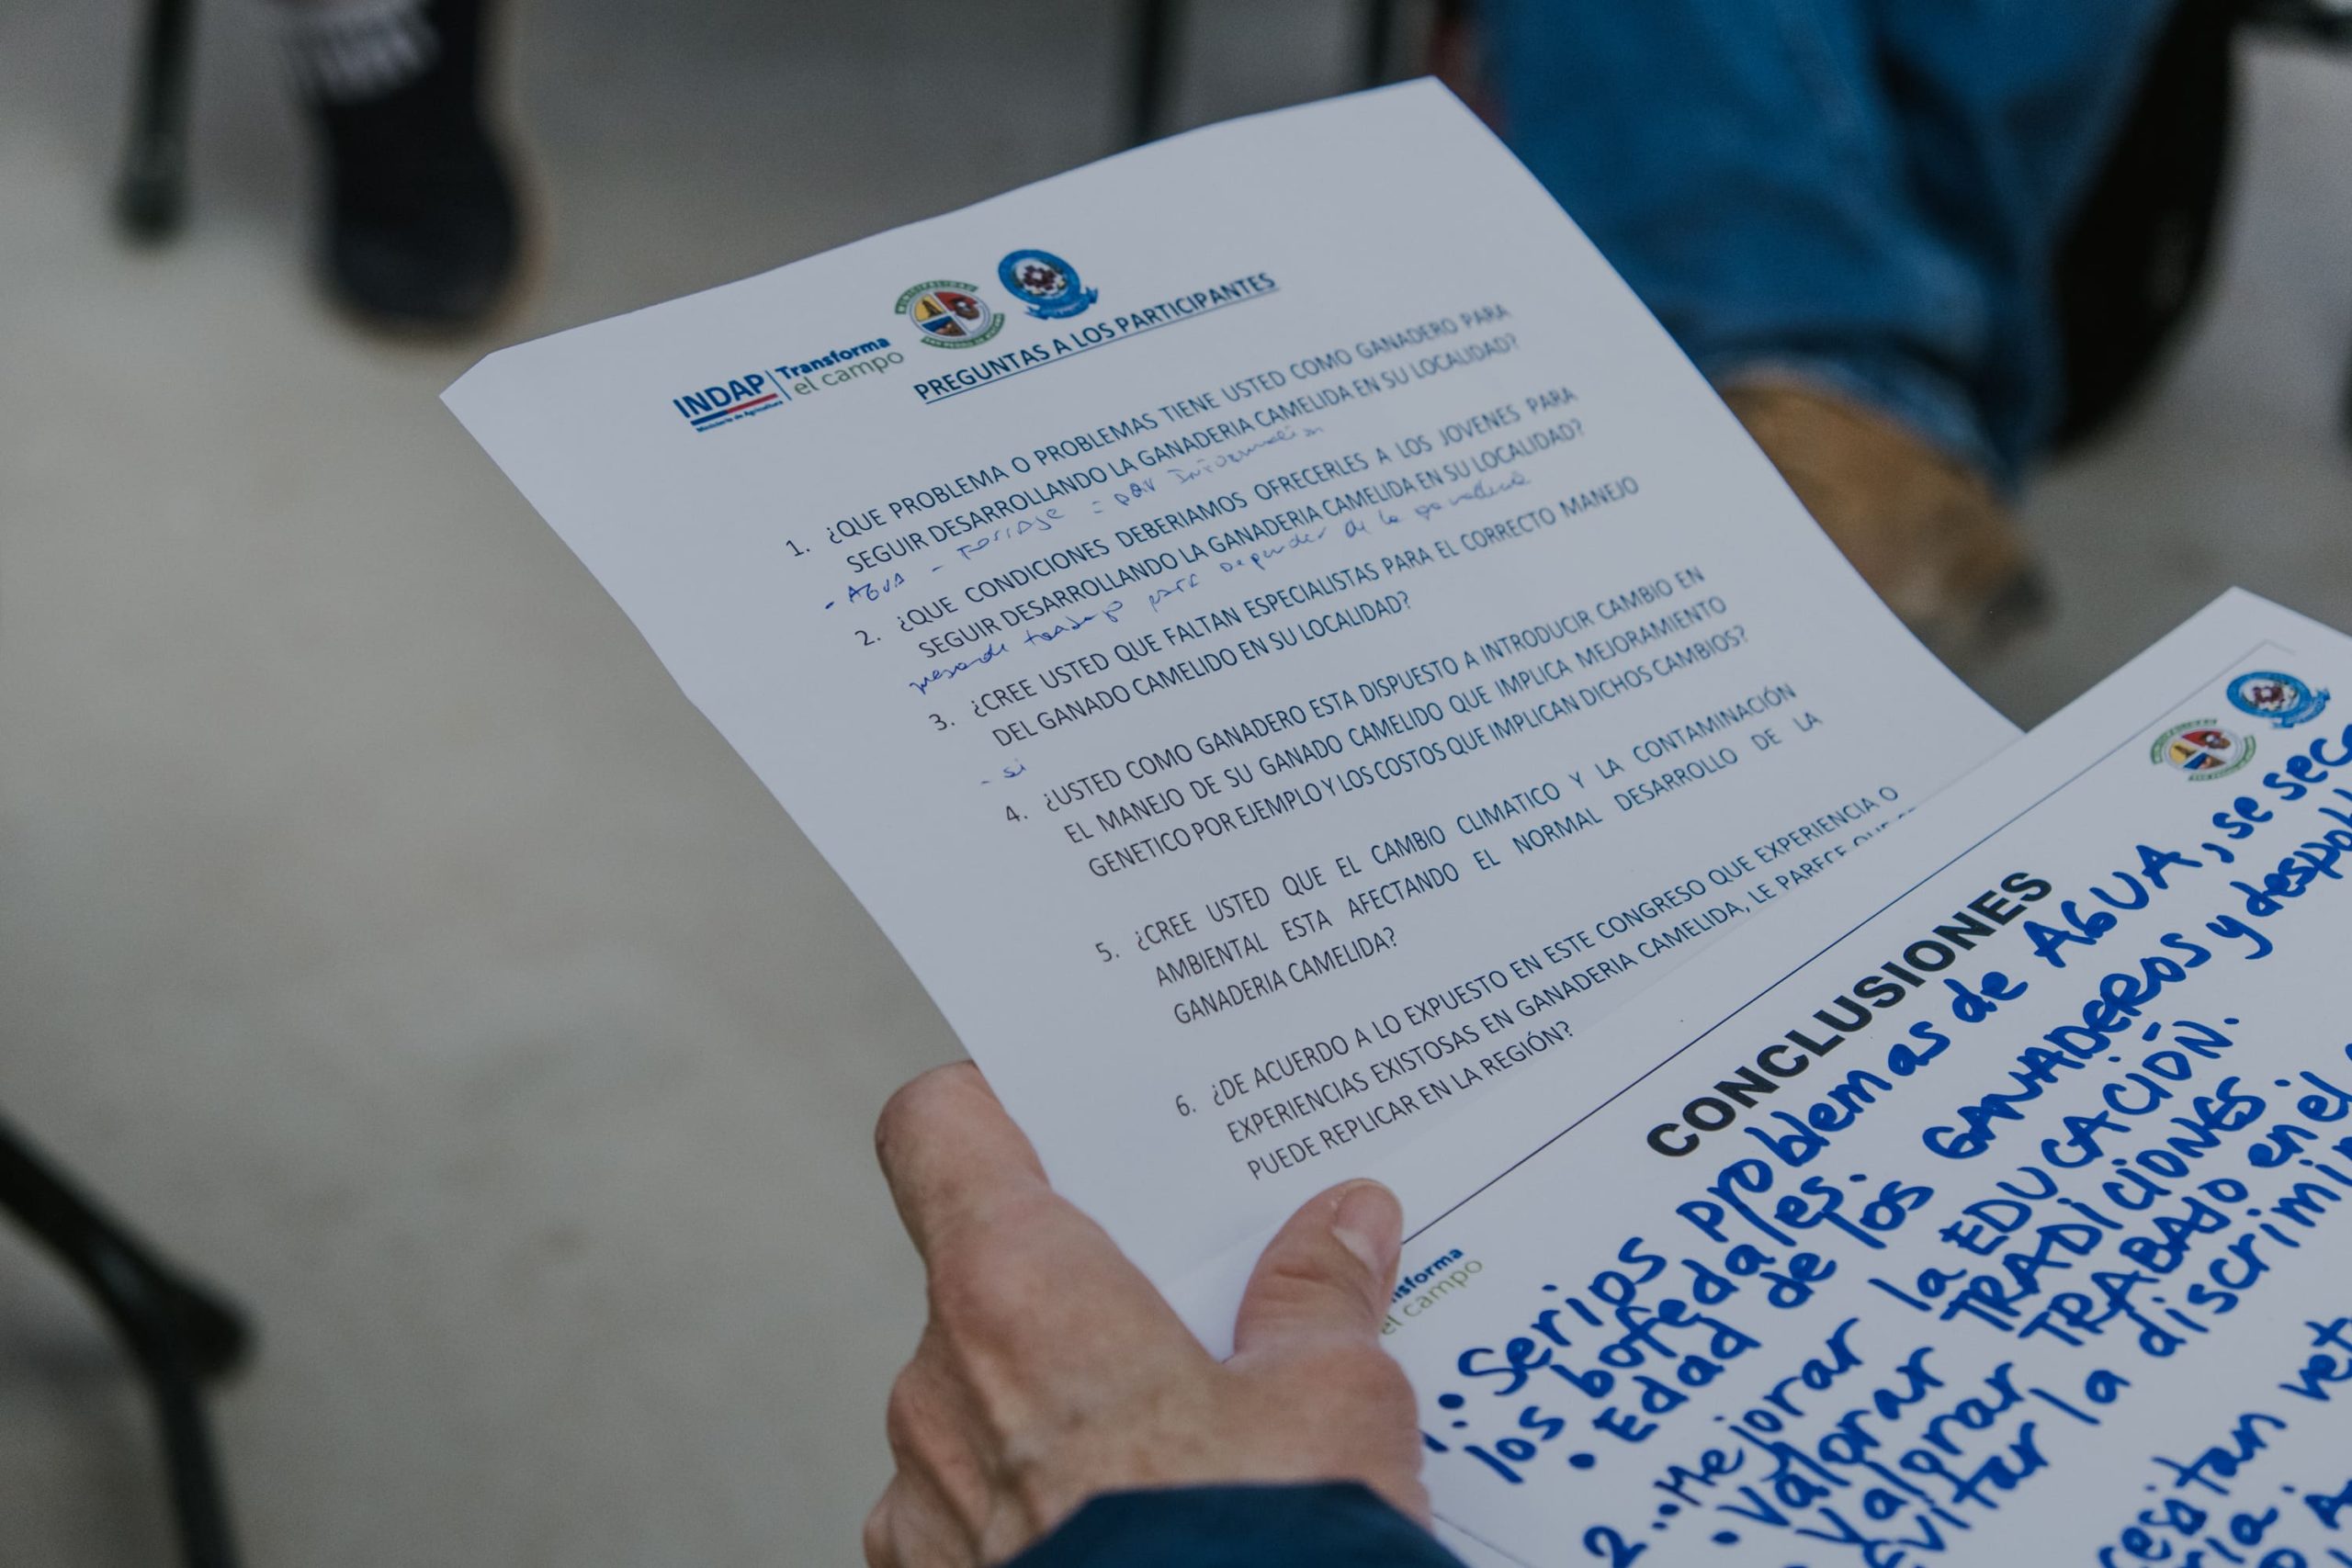 INDAP
Ministerio de Agricultura
Transforma
el campo
PREGUNTAS A LOS PARTICIPANTES
1. ¿QUE PROBLEMA O PROBLEMAS TIENE USTED COMO GANADERO PARA
SEGUIR DESARROLLANDO LA GANADERIA CAMELIDA EN SU LOCALIDAD?
- AGUA - FORRAJE = por Información
2. ¿QUE CONDICIONES DEBERIAMOS OFRECERLES A LOS JOVENES PARA
SEGUIR DESARROLLANDO LA GANADERIA CAMELIDA EN SU LOCALIDAD?
para depender de la ganadería
3. ¿CREE USTED QUE FALTAN ESPECIALISTAS PARA EL CORRECTO MANEJO
DEL GANADO CAMELIDO EN SU LOCALIDAD?
- si
4. ¿USTED COMO GANADERO ESTA DISPUESTO A INTRODUCIR CAMBIO EN
EL MANEJO DE SU GANADO CAMELIDO QUE IMPLICA MEJORAMIENTO
GENETICO POR EJEMPLO Y LOS COSTOS QUE IMPLICAN DICHOS CAMBIOS?
5. ¿CREE USTED QUE EL CAMBIO CLIMATICO Y LA CONTAMINACIÓN
AMBIENTAL ESTA AFECTANDO EL NORMAL DESARROLLO DE LA
GANADERIA CAMELIDA?
6. ¿DE ACUERDO A LO EXPUESTO EN ESTE CONGRESO QUE EXPERIENCIA O
EXPERIENCIAS EXISTOSAS EN GANADERIA CAMELIDA, LE PARECE QUE
PUEDE REPLICAR EN LA REGIÓN?
nsforma
el campo
CONCLUSIONES
1. • Serios problemas de AGUA, se sec
los bofedales.
• Edad de los GANADEROS y despo
2. • Mejorar la EDUCACIÓN.
• Valorar TRADICIONES
Valorar TRABAJO en el
Evitar la discrimin
esitan vet